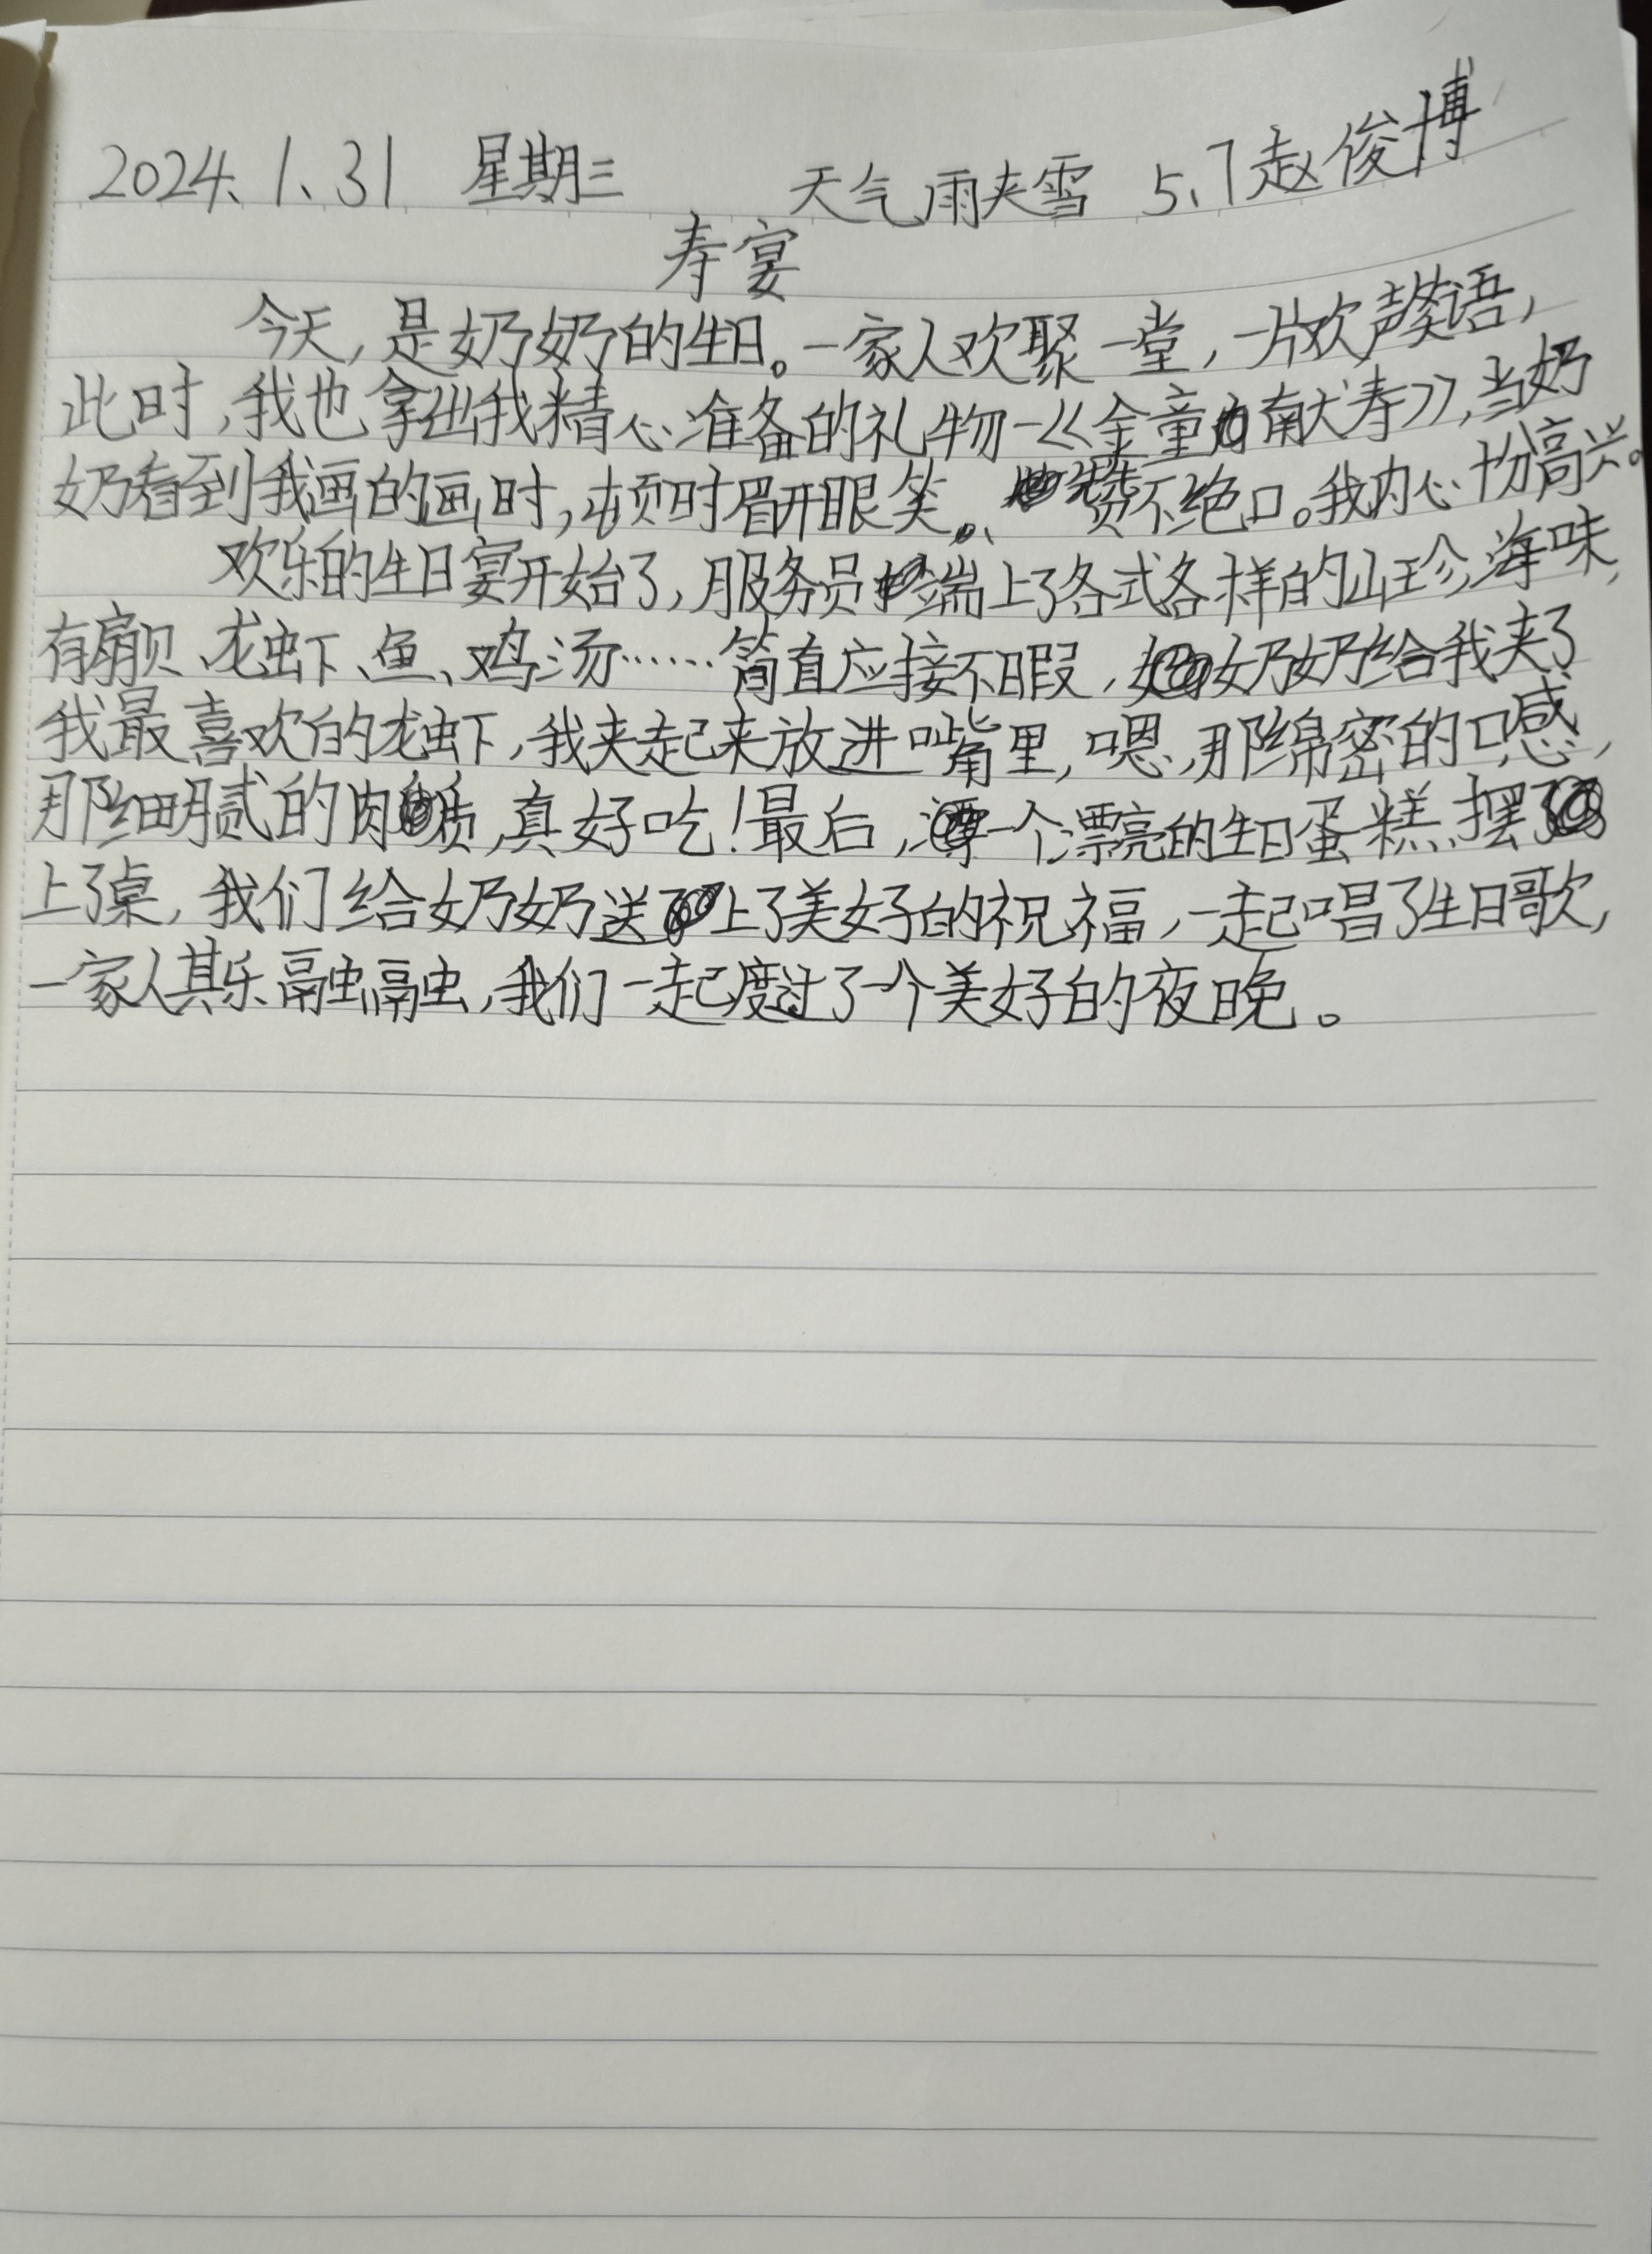 2024、1、31 星期三 天气雨夹雪 5、7赵俊博
寿宴
今天，是奶奶的生日。一家人欢聚一堂，一片欢声笑语，
此时，我也拿出我精心准备的礼物-《金童南犬寿》，当奶
奶看到我画的画时，顿时眉开眼笑。、赞不绝口。我内心十分高兴。
欢乐的生日宴开始了，服务员端上了各式各样的山珍海味，
有扇贝、龙虾、鱼、鸡汤……简直应接不暇，奶奶给我夹了
我最喜欢的龙虾，我夹起来放进嘴里，嗯，那绵密的口感，
那细腻的肉质，真好吃！最后，一个漂亮的生日蛋糕摆了
上了桌，我们给奶奶送上了美好的祝福，一起唱了生日歌，
一家人其乐融融，我们一起度过了一个美好的夜晚。